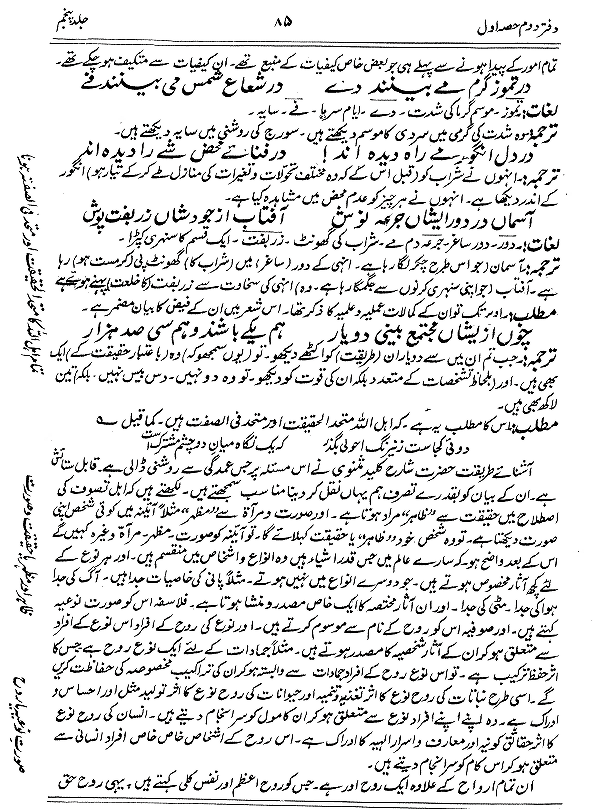 دفتر دوم حصہ اول
۸۵
جلد پنجم
تمام امور کے پیدا ہونے سے پہلے ہی جو بعض خاص کیفیات کے منبع تھے۔ ان کیفیات سے متکیف ہو چکے تھے۔
در تموز گرم مے بینند دے در شعاع شمس می بینند فے
لغات: تموز۔ موسم گرما کی شدت۔ دے۔ ایام سرما۔ فے۔ سایہ۔
ترجمہ: وہ شدت کی گرمی میں سردی کا موسم دیکھتے ہیں۔ سورج کی روشنی میں سایہ دیکھتے ہیں۔
در دل انگور مے را دیدہ اند در فنائے محض شے را دیدہ اند
ترجمہ: انہوں نے شراب کو (قبل اس کے کہ وہ مختلف تحولات و تغیرات کی منازل طے کر کے تیار ہو) انگور
کے اندر دیکھا ہے۔ انہوں نے ہر چیز کو عدم محض میں مشاہدہ کیا ہے۔
آسمان در دور ایشاں جرعہ نوش آفتاب از جود شاں زربفت پوش
لغات: دور۔ دور ساغر۔ جرعہ دم مے۔ شراب کی گھونٹ۔ زربفت۔ ایک قسم کا سنہری کپڑا۔
ترجمہ: آسمان (جو اس طرح چکر لگا رہا ہے۔ انہی کے دور (ساغر) میں (شراب کا) گھونٹ پی (کر مست ہو) رہا
ہے۔ آفتاب (جو اپنی سنہری کرنوں سے جگمگا رہا ہے۔ وہ) انہی کی سخاوت سے زربفت (کا خلعت) پہنے ہوئے ہے
مطلب: اوپر تک تو ان کے کمالات عملیہ و علمیہ کا ذکر تھا۔ اس شعر میں ان کے فیض کا بیان مضمر ہے۔
چوں از یشاں مجتمع بینی دو یار ہم یکے باشند و ہم سی صد ہزار
ترجمہ: جب تم ان میں سے دو یاران (طریقت) کو اکٹھے دیکھو۔ تو (یوں سمجھو کہ) وہ (باعتبار حقیقت کے) ایک
بھی ہیں۔ اور (بلحاظ تشخصات کے متعدد بلکہ ان کی قوت کو دیکھو۔ تو وہ دو نہیں۔ دس بیس نہیں۔ بلکہ) تین
لاکھ بھی ہیں۔
مطلب: اس کا مطلب یہ ہے۔ کہ اہل اللہ متحد الحقیقت اور متحد فی الصفت ہیں۔ کما قیل ؎
دوئی کجاست ز نیرنگ احولی بگذر کہ یک نگاہ میان دو چشم مشترک است
آشنائے طریقت حضرت شارح کلید مثنوی نے اس مسئلہ پر جس عمدگی سے روشنی ڈالی ہے۔ قابل ستائش
ہے۔ ان کے بیان کو بقدرے تصرف ہم یہاں نقل کر دینا مناسب سمجھتے ہیں۔ لکھتے ہیں کہ اہل تصوف کی
اصطلاح میں حقیقت سے "ظاہر" مراد ہوتا ہے۔ اور صورت و مرآۃ سے "مظہر" مثلاً آئینہ میں کوئی شخص اپنی
صورت دیکھتا ہے۔ تو وہ شخص خود "ظاہر" یا حقیقت کہلائے گا۔ تو آئینہ کو صورت۔ مظہر۔ مرآۃ وغیرہ کہیں گے
اس کے بعد واضح ہو۔ کہ سارے عالم میں جس قدر اشیاء ہیں وہ انواع و اشخاص میں منقسم ہیں۔ اور ہر نوع کے
لئے کچھ آثار مخصوص ہوتے ہیں۔ جو دوسرے انواع میں نہیں ہوتے۔ مثلاً پانی کی خاصیات جدا ہیں۔ آگ کی جدا
ہوا کی جدا۔ مٹی کی جدا۔ اور ان آثار مختصہ کا ایک خاص مصدر و منشا ہوتا ہے۔ فلاسفہ اس کو صورت نوعیہ
کہتے ہیں۔ اور صوفیہ اس کو روح کے نام سے موسوم کرتے ہیں۔ اور نوع کی روح کے افراد اس نوع کے افراد
سے متعلق ہو کر ان کے آثار شخصیہ کا مصدر ہوتے ہیں۔ مثلاً جمادات کے لئے ایک نوع روح ہے جس کا
اثر حفظ ترکیب ہے۔ تو اس نوع روح کے افراد جمادات سے وابستہ ہو کر ان کی تراکیب مخصوصہ کی حفاظت کریں
گے۔ اسی طرح نباتات کی روح نوع کا اثر تغذیہ و تنمیہ اور حیوانات کی روح نوع کا اثر تولید مثل اور احساس و
ادراک ہے۔ وہ اپنے اپنے افراد نوع سے متعلق ہو کر ان کاموں کو سرانجام دیتے ہیں۔ انسان کی روح نوع
کا اثر حقائق کونیہ اور معارف و اسرار الٰہیہ کا ادراک ہے۔ اس روح کے اشخاص خاص خاص افراد انسانی سے
متعلق ہو کر اس کام کو سرانجام دیتے ہیں۔
ان تمام ارواح کے علاوہ ایک روح اور ہے۔ جس کو روح اعظم اور نفس کلی کہتے ہیں۔ یہی روح حق
تمام اہل اللہ کا متحد الحقیقت اور متحد فی الصفت ہونا
ظاہر اور مظہر یا حقیقت و صورت
صورت نوعیہ یا روح